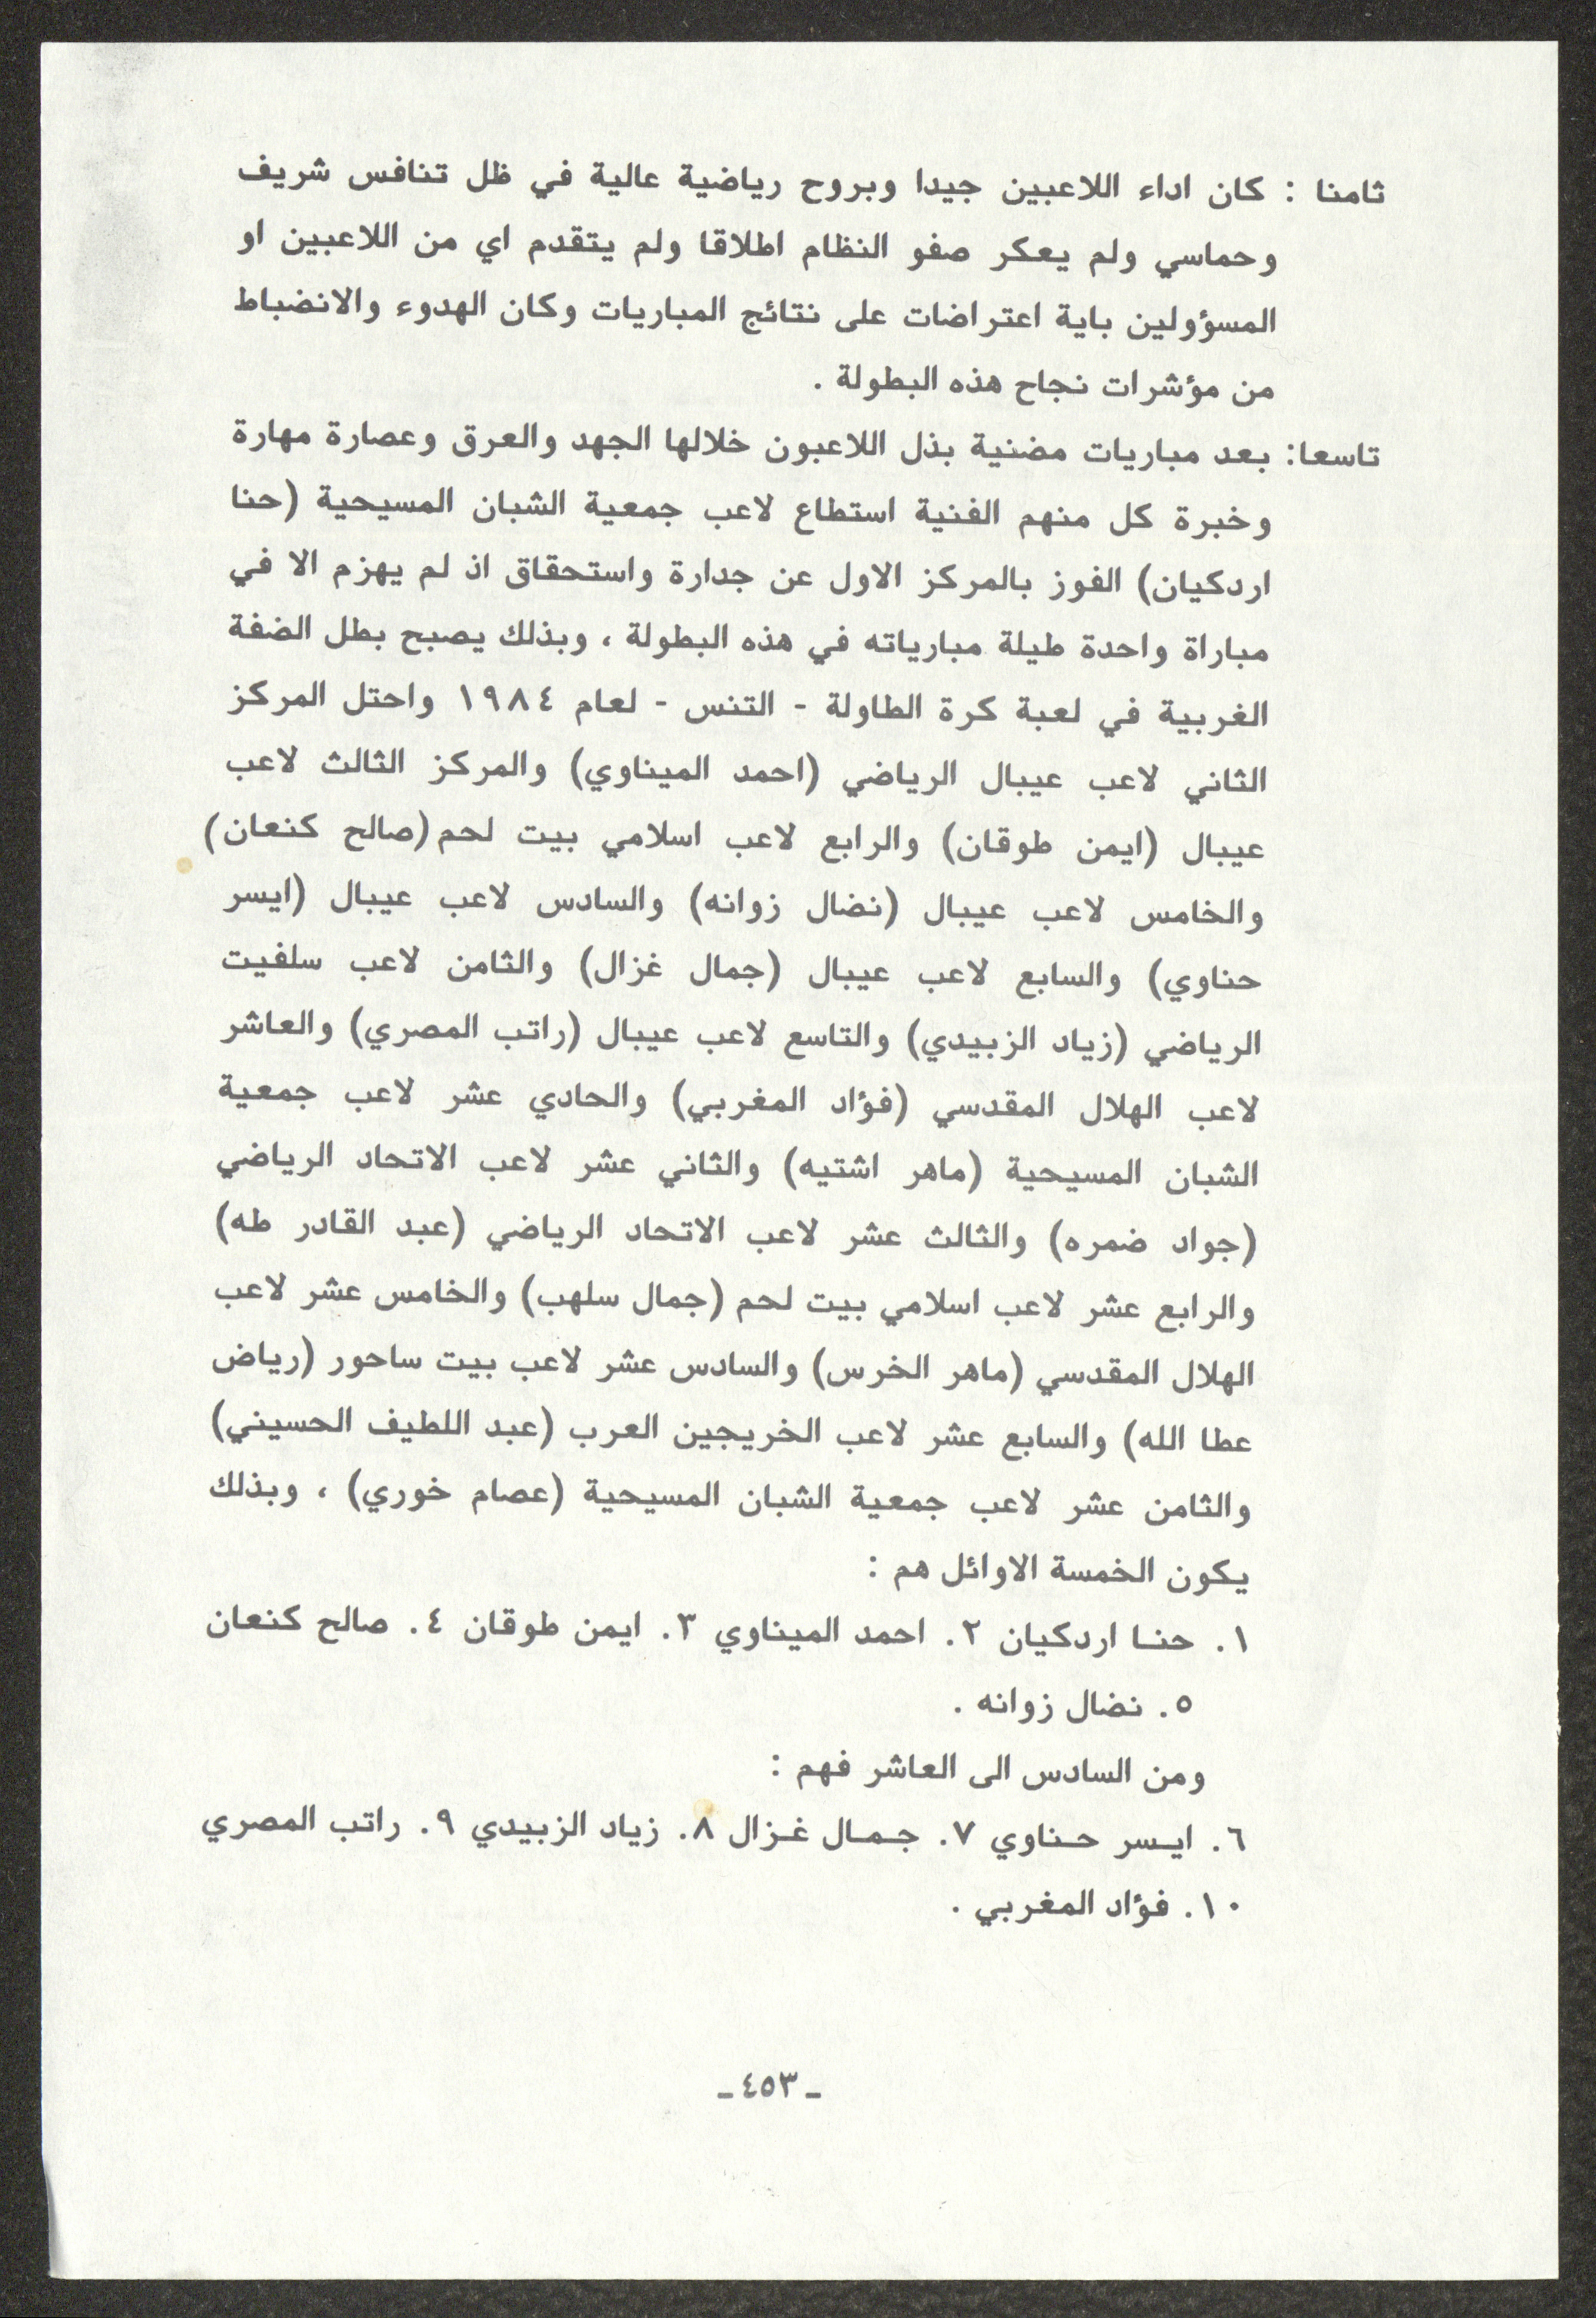 ثامنا : كان اداء اللاعبين جيدا وبروح رياضية عالية في ظل تنافس شريف
وحماسي ولم يعكر صفو النظام اطلاقا ولم يتقدم اي من اللاعبين او
المسؤولين باية اعتراضات على نتائج المباريات وكان الهدوء والانضباط
من مؤشرات نجاح هذه البطولة .
تاسعا: بعد مباريات مضنية بذل اللاعبون خلالها الجهد والعرق وعصارة مهارة
وخبرة كل منهم الفنية استطاع لاعب جمعية الشبان المسيحية (حنا
اردكيان) الفوز بالمركز الاول عن جدارة واستحقاق اذ لم يهزم الا في
مباراة واحدة طيلة مبارياته في هذه البطولة ، وبذلك يصبح بطل الضفة
الغربية في لعبة كرة الطاولة - التنس - لعام ١٩٨٤ واحتل المركز
الثاني لاعب عيبال الرياضي (احمد الميناوي) والمركز الثالث لاعب
عيبال (ايمن طوقان) والرابع لاعب اسلامي بيت لحم (صالح كنعان)
والخامس لاعب عيبال (نضال زوانه) والسادس لاعب عيبال (ايسر
حناوي) والسابع لاعب عيبال (جمال غزال) والثامن لاعب سلفيت
الرياضي (زياد الزبيدي) والتاسع لاعب عيبال (راتب المصري) والعاشر
لاعب الهلال المقدسي (فؤاد المغربي) والحادي عشر لاعب جمعية
الشبان المسيحية (ماهر اشتيه) والثاني عشر لاعب الاتحاد الرياضي
(جواد ضمره) والثالث عشر لاعب الاتحاد الرياضي (عبد القادر طه)
والرابع عشر لاعب اسلامي بيت لحم (جمال سلهب) والخامس عشر لاعب
الهلال المقدسي (ماهر الخرس) والسادس عشر لاعب بيت ساحور (رياض
عطا الله) والسابع عشر لاعب الخريجين العرب (عبد اللطيف الحسيني)
والثامن عشر لاعب جمعية الشبان المسيحية (عصام خوري) ، وبذلك
يكون الخمسة الاوائل هم :
١. حنا اردكيان ٢. احمد الميناوي ٣. ايمن طوقان ٤. صالح كنعان
٥. نضال زوانه .
ومن السادس الى العاشر فهم :
٦. ايسر حناوي ٧. جمال غزال ٨. زياد الزبيدي ٩. راتب المصري
١٠. فؤاد المغربي .
ـ ٤٥٣ ـ